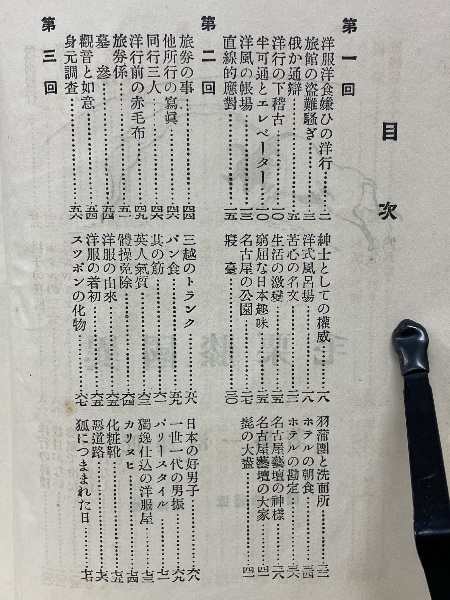 目次
第一回
洋服洋食嫌ひの洋行…………二
旅館の盜難騷ぎ…………三
俄か通辯…………五
洋行の下稽古…………一〇
半可通とエレベーター…………一〇
洋風の帳場…………一三
直線的應對…………一五
紳士としての權威…………一八
洋式風呂場…………一八
苦心の名文…………二一
生活の激變…………二五
窮屈な日本趣味…………二五
名古屋の公園…………二七
寢臺…………三〇
羽蒲團と洗面所…………三三
ホテルの朝食…………三四
ホテルの勘定…………三六
名古屋藝壇の神樣…………三八
名古屋藝壇の大家…………四一
髭の大盡…………四一
第二回
旅券の事…………四四
他所行の寫眞…………四六
同行三人…………四六
洋行前の赤毛布…………四九
旅券係…………五一
墓參…………五四
觀音と如意…………五四
身元調査…………五六
三越のトランク…………五八
パン食…………五九
其の筋…………六一
英人氣質…………六三
體操免除…………六四
洋服の由來…………六五
洋服の着初…………六五
スツポンの化物…………六七
日本の好男子…………六八
一世一代の男振…………六九
パリースタイル…………七一
獨逸仕込の洋服屋…………七三
カリヌヒ…………七四
化粧靴…………七五
惡道路…………七七
狐につままれた日…………七七
第三回